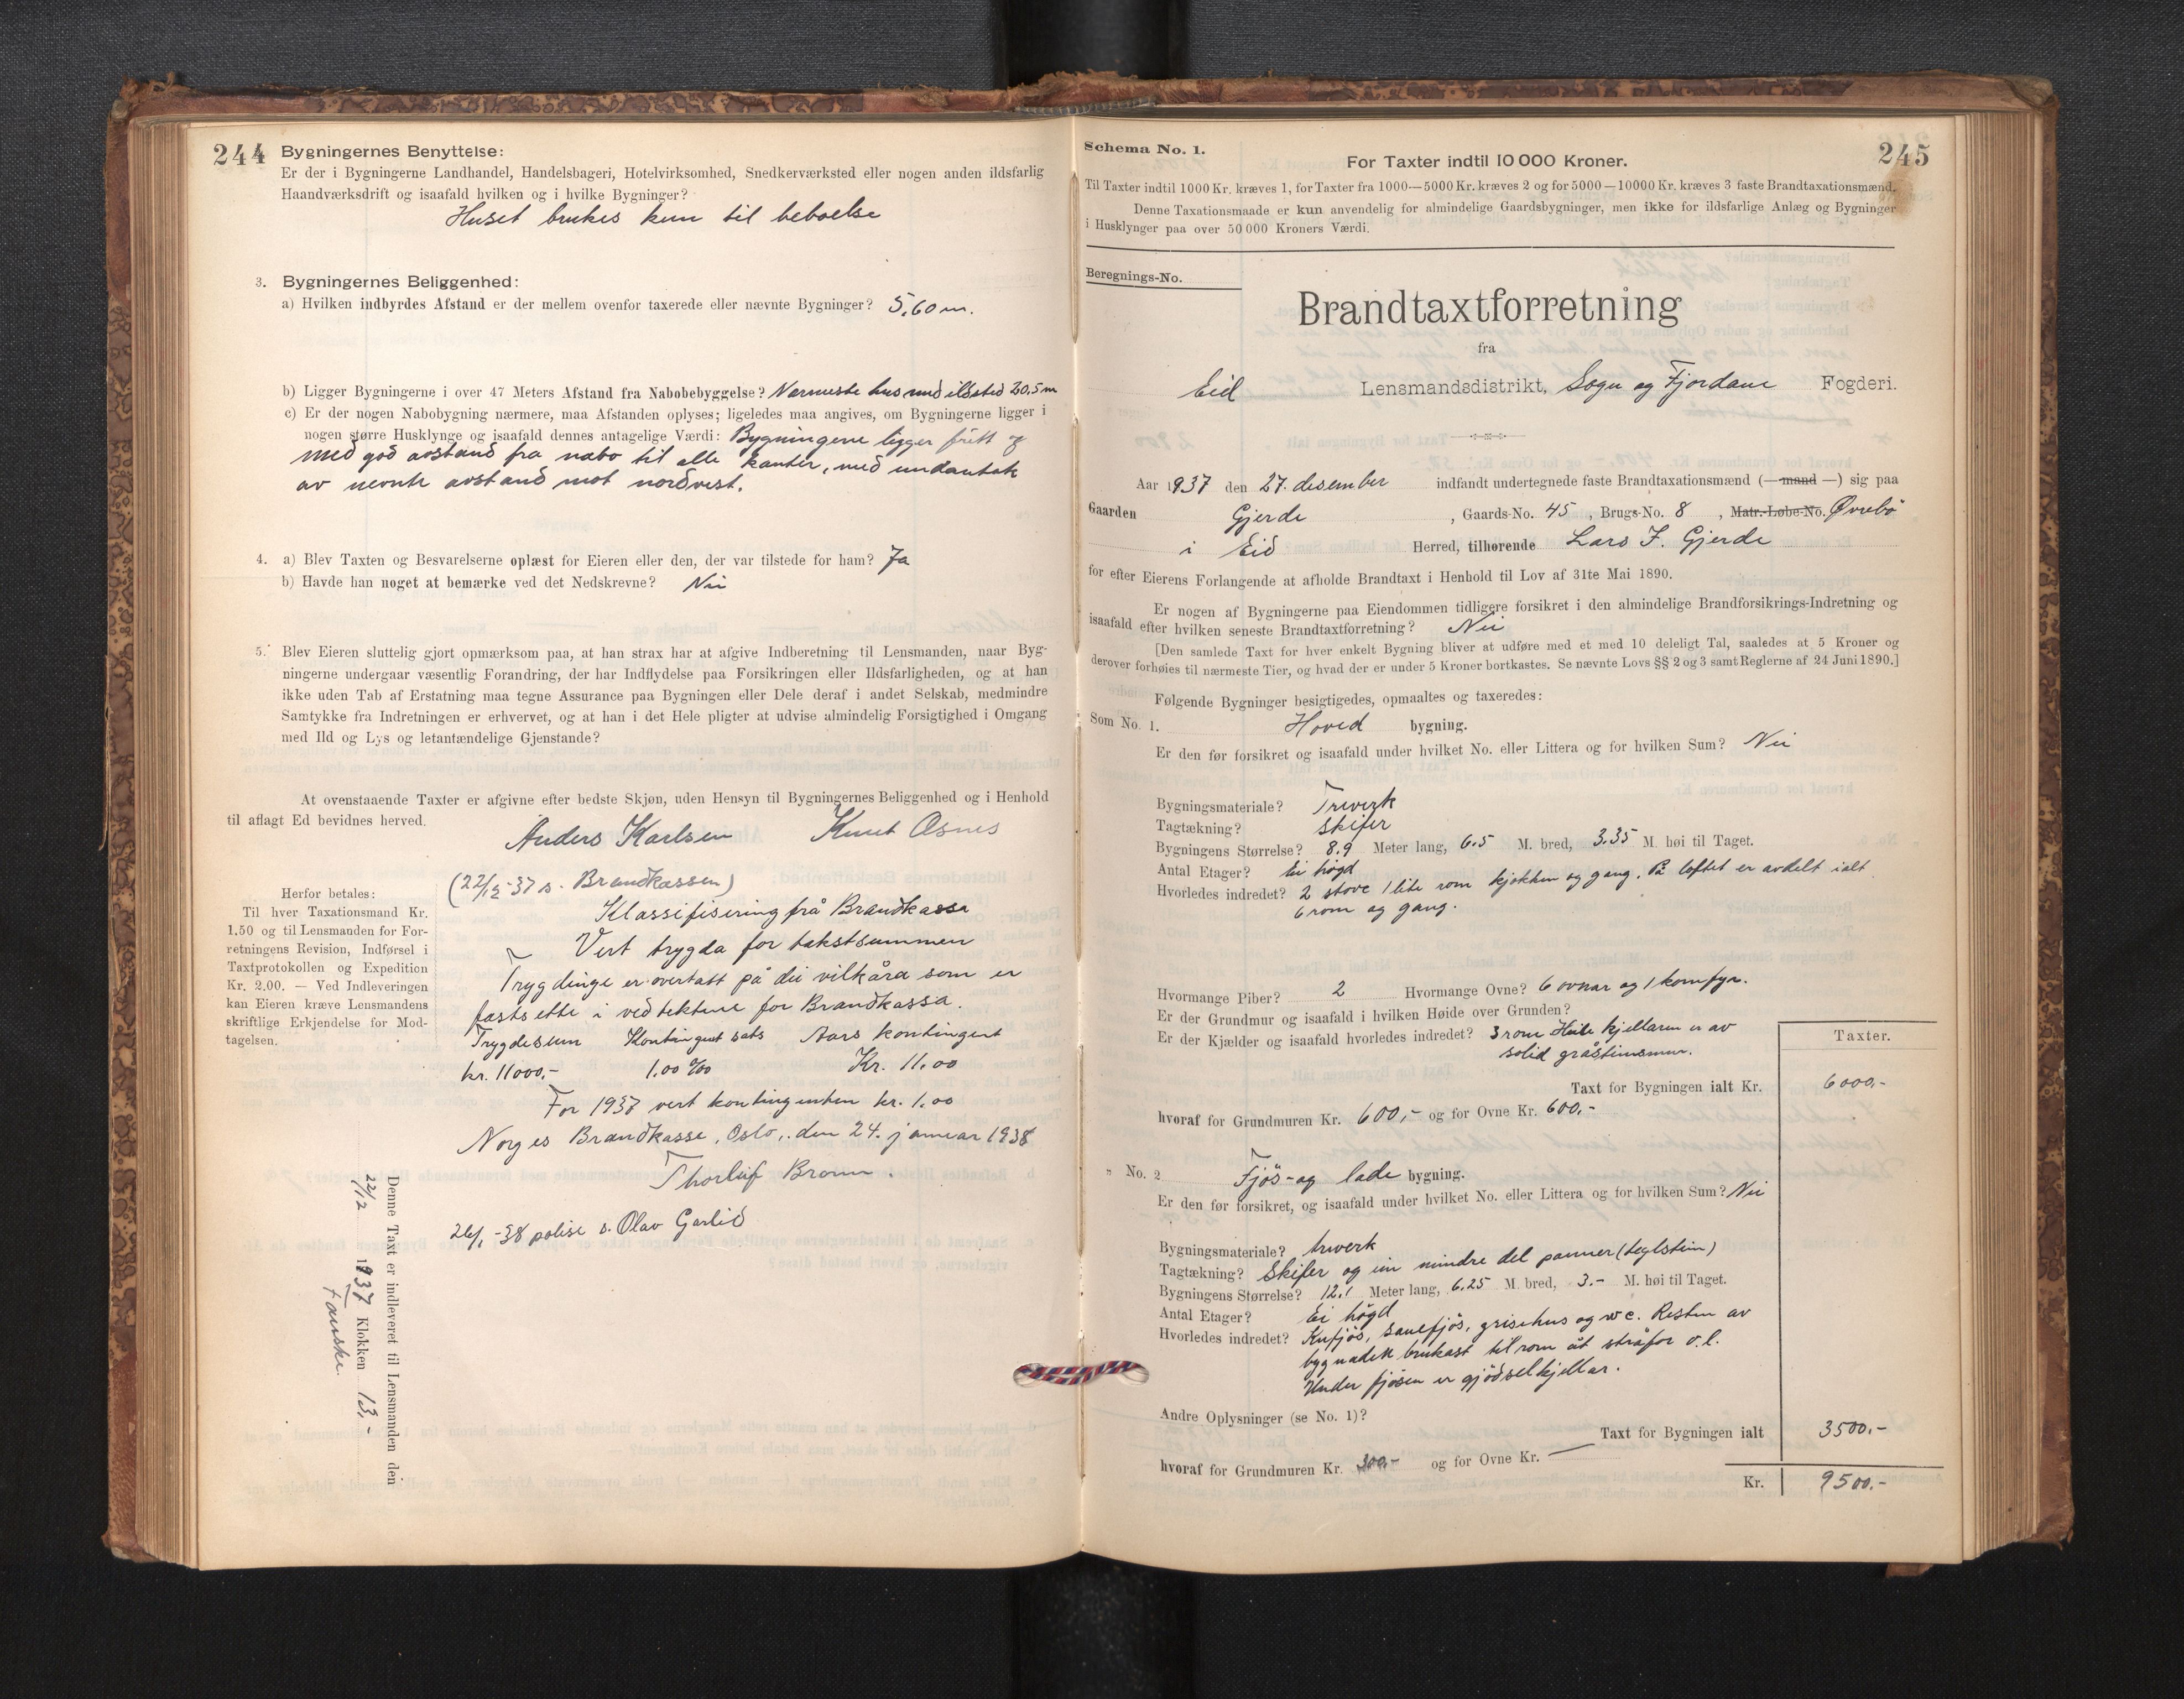 244
Bygningernes Benyttelse:
Er der i Bygningerne Landhandel, Handelsbageri, Hotelvirksomhed, Snedkerværksted eller nogen anden ildsfarlig
Haandværksdrift og isaafald hvilken og i hvilke Bygninger?
Huset brukes kun til beboelse
3. Bygningernes Beliggenhed:
a) Hvilken indbyrdes Afstand er der mellem ovenfor taxerede eller nævnte Bygninger? 5,60 m.
b) Ligger Bygningerne i over 47 Meters Afstand fra Nabobebyggelse? Nærmeste hus med ildsted 20,5 m
c) Er der nogen Nabobygning nærmere, maa Afstanden oplyses; ligeledes maa angives, om Bygningerne ligger i
nogen større Husklynge og isaafald dennes antagelige Værdi: Bygningene ligger fritt og
med god avstand fra nabo til alle kanter, med undantak
av nevnte avstand mot nordvest.
4. a) Blev Taxten og Besvarelserne oplæst for Eieren eller den, der var tilstede for ham? Ja
b) Havde han noget at bemærke ved det Nedskrevne? Nei
5. Blev Eieren sluttelig gjort opmærksom paa, at han strax har at afgive Indberetning til Lensmanden, naar Byg-
ningerne undergaar væsentlig Forandring, der har Indflydelse paa Forsikringen eller Ildsfarligheden, og at han
ikke uden Tab af Erstatning maa tegne Assurance paa Bygningen eller Dele deraf i andet Selskab, medmindre
Samtykke fra Indretningen er erhvervet, og at han i det Hele pligter at udvise almindelig Forsigtighed i Omgang
med Ild og Lys og letantændelige Gjenstande?
At ovenstaaende Taxter er afgivne efter bedste Skjøn, uden Hensyn til Bygningernes Beliggenhed og i Henhold
til aflagt Ed bevidnes herved.
Anders Karlsen Knut Osnes
(22/12-37 s. Brandkassen)
Klassifisering frå Brandkassa
Vert trygda for takstsummen
Trygdinge er overtatt på dei vilkåra som er
fastsette i vedtektene for Brandkassa.
Trygdesum Kontingent sats Aars kontingent
kr. 11000,- 1.00 ‰ Kr. 11.00
For 1937 vert kontingenten kr. 1,00
Norges Brandkasse, Oslo, den 24. januar 1938
Thorleif Broun.
26/1-38 polise s. Olav Garlid
Herfor betales:
Til hver Taxationsmand Kr.
1,50 og til Lensmanden for For-
retningens Revision, Indførsel i
Taxtprotokollen og Expedition
Kr. 2,00. — Ved Indleveringen
kan Eieren kræve Lensmandens
skriftlige Erkjendelse for Mod-
tagelsen.
Denne Taxt er indleveret til Lensmanden den
22/12 1937 Klokken 13,-
Fauske.
245
Schema No. 1.
For Taxter indtil 10 000 Kroner.
Til Taxter indtil 1000 Kr. kræves 1, for Taxter fra 1000—5000 Kr. kræves 2 og for 5000—10000 Kr. kræves 3 faste Brandtaxationsmænd.
Denne Taxationsmaade er kun anvendelig for almindelige Gaardsbygninger, men ikke for ildsfarlige Anlæg og Bygninger
i Husklynger paa over 50 000 Kroners Værdi.
Beregnings-No.
Brandtaxtforretning
fra
Eid Lensmandsdistrikt, Sogn og Fjordane Fogderi.
Aar 1937 den 27. desember indfandt undertegnede faste Brandtaxationsmænd (—mand—) sig paa
Gaarden Gjerde, Gaards-No. 45, Brugs-No. 8, Matr.-Løbe-No. Øvrebö
i Eid Herred, tilhørende Lars J. Gjerde
for efter Eierens Forlangende at afholde Brandtaxt i Henhold til Lov af 31te Mai 1890.
Er nogen af Bygningerne paa Eiendommen tidligere forsikret i den almindelige Brandforsikrings-Indretning og
isaafald efter hvilken seneste Brandtaxtforretning? Nei
[Den samlede Taxt for hver enkelt Bygning bliver at udføre med et med 10 deleligt Tal, saaledes at 5 Kroner og
derover forhøies til nærmeste Tier, og hvad der er under 5 Kroner bortkastes. Se nævnte Lovs §§ 2 og 3 samt Reglerne af 24 Juni 1890.]
Følgende Bygninger besigtigedes, opmaaltes og taxeredes:
Som No. 1. Hoved bygning.
Er den før forsikret og isaafald under hvilket No. eller Littera og for hvilken Sum? Nei
Bygningsmateriale? Treverk
Tagtækning? skifer
Bygningens Størrelse? 8.9 Meter lang, 6.5 M. bred, 3.35 M. høi til Taget.
Antal Etager? Ei högd
Hvorledes indredet? 2 stove 1 lite rom kjøkken og gang. På loftet er avdelt ialt
6 rom og gang.
Hvormange Piber? 2 Hvormange Ovne? 6 ovnar og 1 komfyr.
Er der Grundmur og isaafald i hvilken Høide over Grunden?
Er der Kjælder og isaafald hvorledes indredet? 3 rom Heile kjellaren er av
solid gråsteinsmur.
Taxter.
Taxt for Bygningen ialt Kr. 6000,-
hvoraf for Grundmuren Kr. 600,- og for Ovne Kr. 600,-
„ No. 2 Fjös- og lade bygning.
Er den før forsikret, og isaafald under hvilket No. eller Littera og for hvilken Sum? Nei
Bygningsmateriale? treverk
Tagtækning? Skifer og ein mindre del panner (teglstein)
Bygningens Størrelse? 12.1 Meter lang, 6.25 M. bred, 3.- M. høi til Taget.
Antal Etager? Ei högd
Hvorledes indredet? Kufjös, sauefjös, grisehus og wc. Resten av
bygnaden brukast til rom åt stråfor o.l.
Under fjösen er gjödselkjellar.
Andre Oplysninger (se No. 1)?
Taxt for Bygningen ialt 3500,-
hvoraf for Grundmuren Kr. 300,- og for Ovne Kr. —
Kr. 9500,-